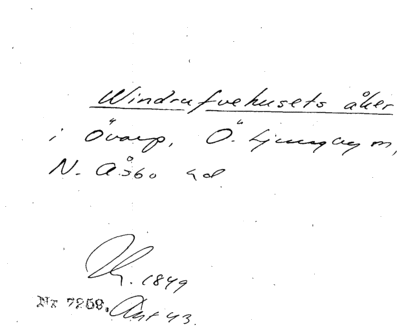 Windrufvehusets åker
i Övarp, Ö. Ljungby sn,
N. Åsbo hd
1849
Nr 7259. Ant 43.